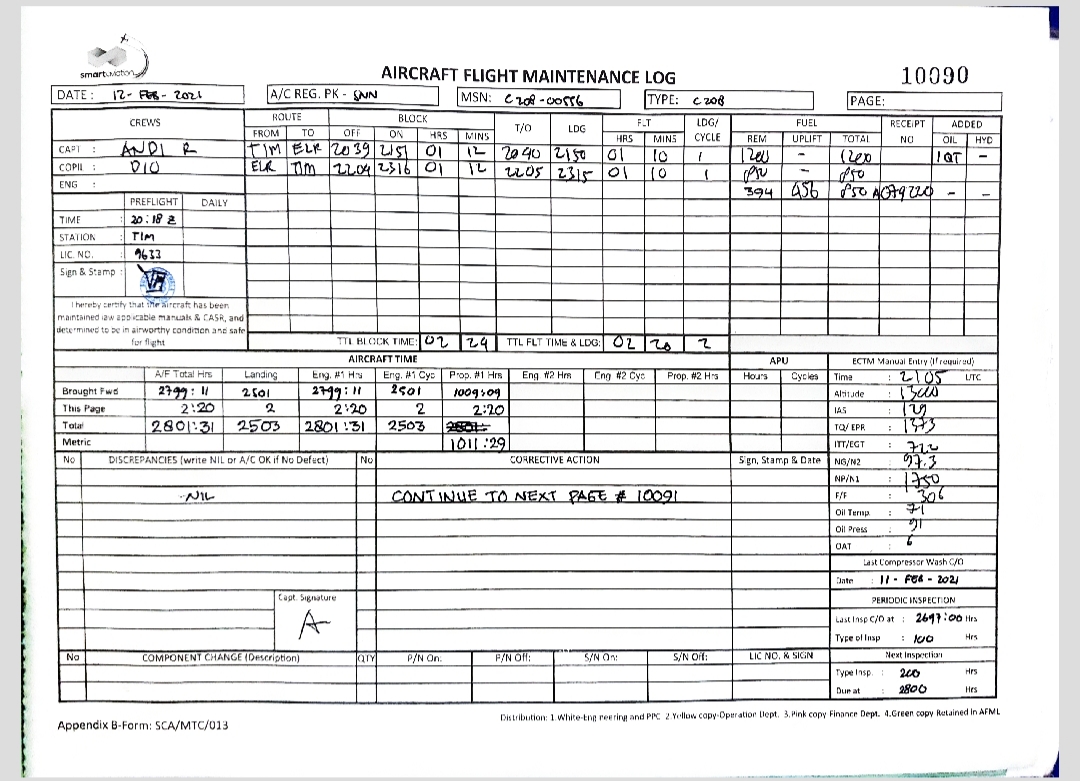 smart aviation
AIRCRAFT FLIGHT MAINTENANCE LOG
10090
DATE : 12- FEB - 2021 A/C REG. PK - SNN MSN: C208-00556 TYPE: C208 PAGE:
CREWS ROUTE BLOCK T/O LDG FLT LDG/ CYCLE FUEL RECEIPT NO ADDED
FROM TO OFF ON HRS MINS HRS MINS REM UPLIFT TOTAL OIL HYD
CAPT : ANDI R TIM ELR 2039 2151 01 12 2040 2150 01 10 1 1200 - 1200 1QT -
COPIL : DIO ELR TIM 2204 2316 01 12 2205 2315 01 10 1 850 - 850
ENG : 394 456 850 - -
PREFLIGHT DAILY
TIME : 20:18 Z
STATION : TIM
LIC. NO. : 9633
Sign & Stamp :
I hereby certify that the aircraft has been
maintained iaw applicable manuals & CASR, and
determined to be in airworthy condition and safe
for flight
TTL BLOCK TIME: 02 24 TTL FLT TIME & LDG: 02 20 2
AIRCRAFT TIME APU ECTM Manual Entry (If required)
A/F Total Hrs Landing Eng. #1 Hrs Eng. #1 Cyc Prop. #1 Hrs Eng. #2 Hrs Eng #2 Cyc Prop. #2 Hrs Hours Cycles Time : 2105 UTC
Brought Fwd 2799:11 2501 2799:11 2501 1009:09 Altitude : 13000
This Page 2:20 2 2:20 2 2:20 IAS : 129
Total 2801:31 2503 2801:31 2503 TQ/ EPR : 1373
Metric 1011:29 ITT/EGT : 722
No DISCREPANCIES (write NIL or A/C OK if No Defect) No CORRECTIVE ACTION Sign, Stamp & Date NG/N2 : 97.3
NP/N1 : 1750
-NIL CONTINUE TO NEXT PAGE # 10091 F/F : 306
Oil Temp : 71
Oil Press : 91
OAT : 6
Last Compressor Wash C/O
Date : 11 - FEB - 2021
PERIODIC INSPECTION
Capt. Signature
Last Insp C/O at : 2697:00 Hrs
Type of Insp : 100 Hrs
No COMPONENT CHANGE (Description) QTY P/N On: P/N Off: S/N On: S/N Off: LIC NO. & SIGN Next Inspection
Type Insp. : 200 Hrs
Due at : 2800 Hrs
Distribution: 1.White-Engineering and PPC 2.Yellow copy-Operation Dept. 3.Pink copy Finance Dept. 4.Green copy Retained in AFML
Appendix B-Form: SCA/MTC/013